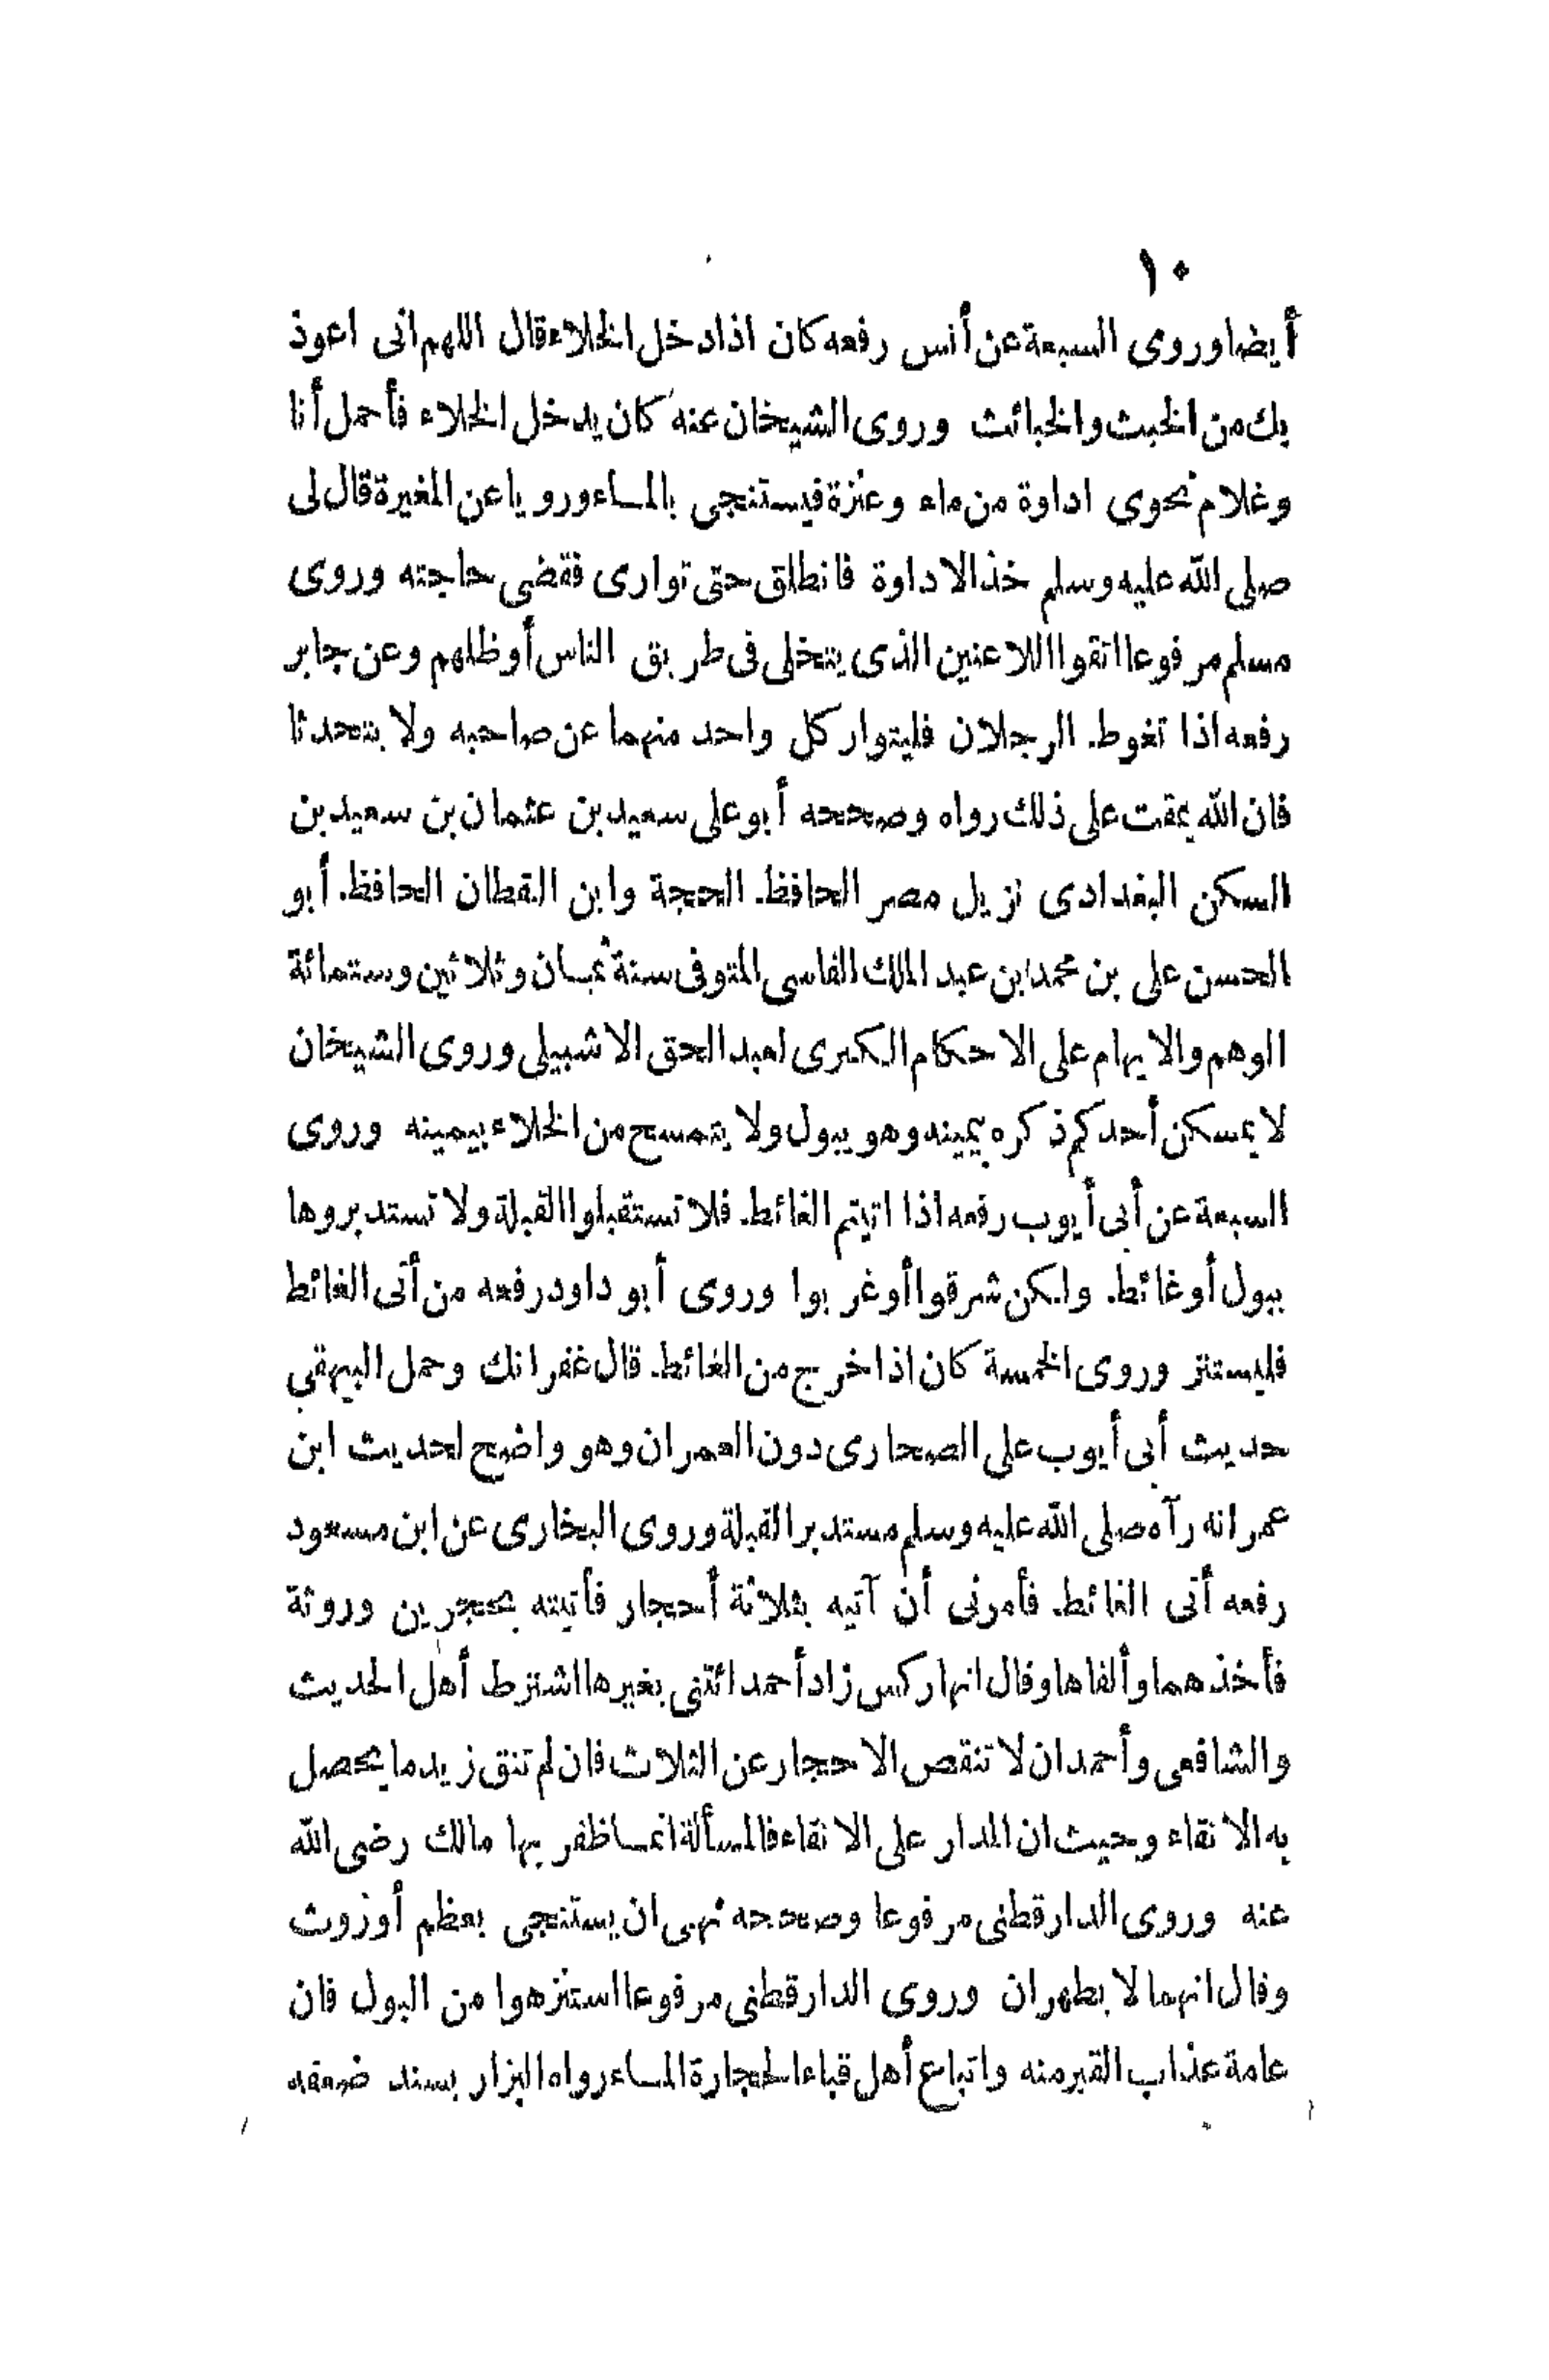 ١٠
أيضا وروى السبعة عن أنس رفعه كان اذا دخل الخلاء قال اللهم انى اعوذ
بك من الخبث والخبائث وروى الشيخان عنه كان يدخل الخلاء فأحمل أنا
وغلام نحوى اداوة من ماء وعنزة فيستنجى بالماء ورويا عن المغيرة قال لى
صلى الله عليه وسلم خذ الاداوة فانطلق حتى توارى فقضى حاجته وروى
مسلم مرفوعا اتقوا اللاعنين الذى يتخلى فى طريق الناس أو ظلهم وعن جابر
رفعه اذا تغوط الرجلان فليتوار كل واحد منهما عن صاحبه ولا يتحدثا
فان الله يمقت على ذلك رواه وصححه أبو على سعيد بن عثمان بن سعيد بن
السكن البغدادى نزيل مصر الحافظ الحجة وابن القطان الحافظ أبو
الحسن على بن محمد ابن عبد المالك الفاسى المتوفى سنة ثمان وثلاثين وستمائة
الوهم والايهام على الاحكام الكبرى لعبد الحق الاشبيلى وروى الشيخان
لا يمسكن أحدكم ذكره بيمينه وهو يبول ولا يتمسح من الخلاء بيمينه وروى
السبعة عن أبى أيوب رفعه اذا اتيتم الغائط فلا تستقبلوا القبلة ولا تستدبروها
ببول أو غائط ولكن شرقوا أو غربوا وروى أبو داود رفعه من أتى الغائط
فليستتر وروى الخمسة كان اذا خرج من الغائط قال غفرانك وحمل البيهقى
حديث أبى أيوب على الصحارى دون العمران وهو واضح لحديث ابن
عمر انه رآه صلى الله عليه وسلم مستدبر القبلة وروى البخارى عن ابن مسعود
رفعه أتى الغائط فأمرنى أن آتيه بثلاثة أحجار فأتيته بحجرين وروثة
فأخذهما وألقاها وقال انها ركس زاد أحمد ائتنى بغيرها اشترط أهل الحديث
والشافعى وأحمد ان لا تنقص الاحجار عن الثلاث فان لم تنق زيد ما يحصل
به الانقاء وحيث ان المدار على الانقاء فالمسألة انما ظفر بها مالك رضى الله
عنه وروى الدارقطنى مرفوعا وصححه نهى ان يستنجى بعظم أو روث
وقال انهما لا يطهران وروى الدارقطنى مرفوعا استنزهوا من البول فان
عامة عذاب القبر منه واتباع أهل قباء الحجارة الماء رواه البزار بسند ضعفه